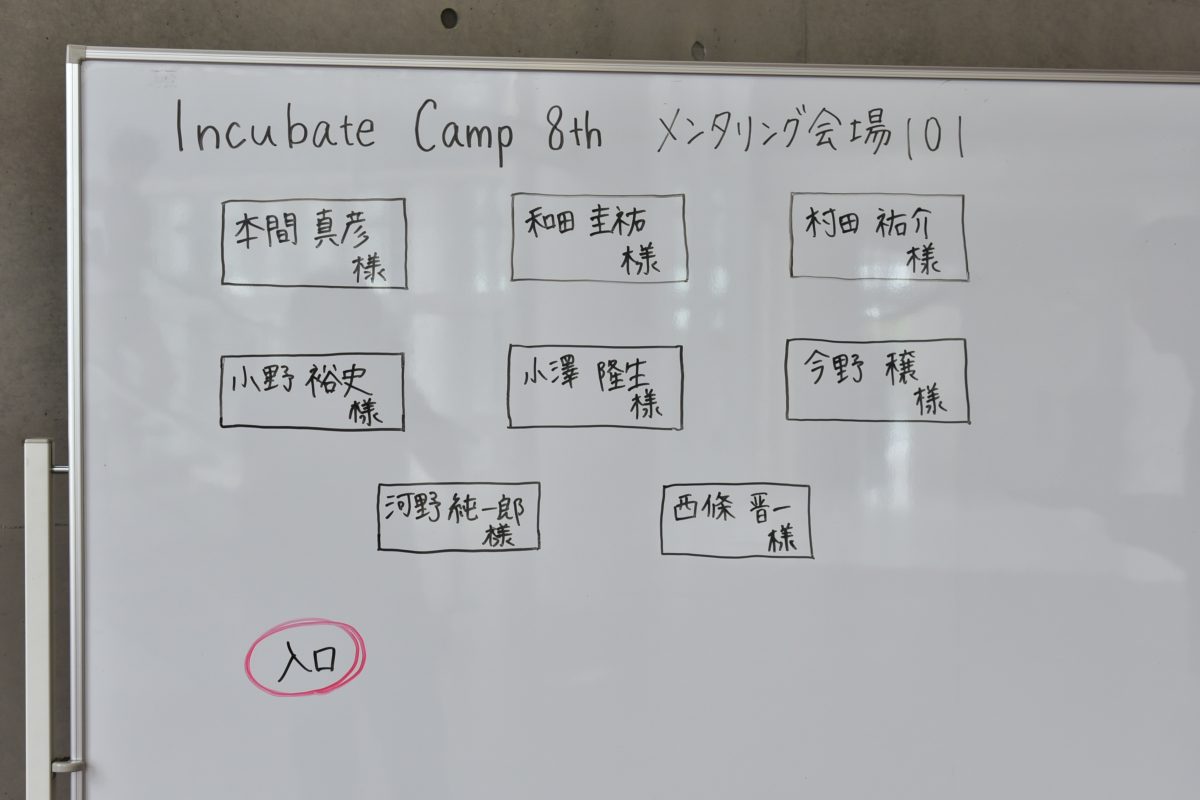 Incubate Camp 8th メンタリング会場101
本間 真彦
様
和田 圭祐
様
村田 祐介
様
小野 裕史
様
小澤 隆生
様
今野 穣
様
河野 純一郎
様
西條 晋一
様
入口